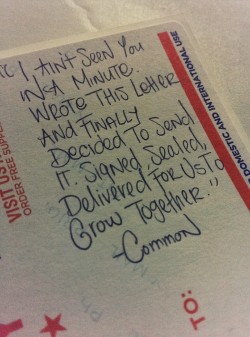 I Ain't Seen You
IN A Minute.
Wrote This Letter
And Finally
Decided To Send
It. Signed, Sealed,
Delivered For Us To
Grow Together."
-Common
VISIT US
ORDER FREE SUPP
DOMESTIC AND INTERNATIONAL USE
TO: